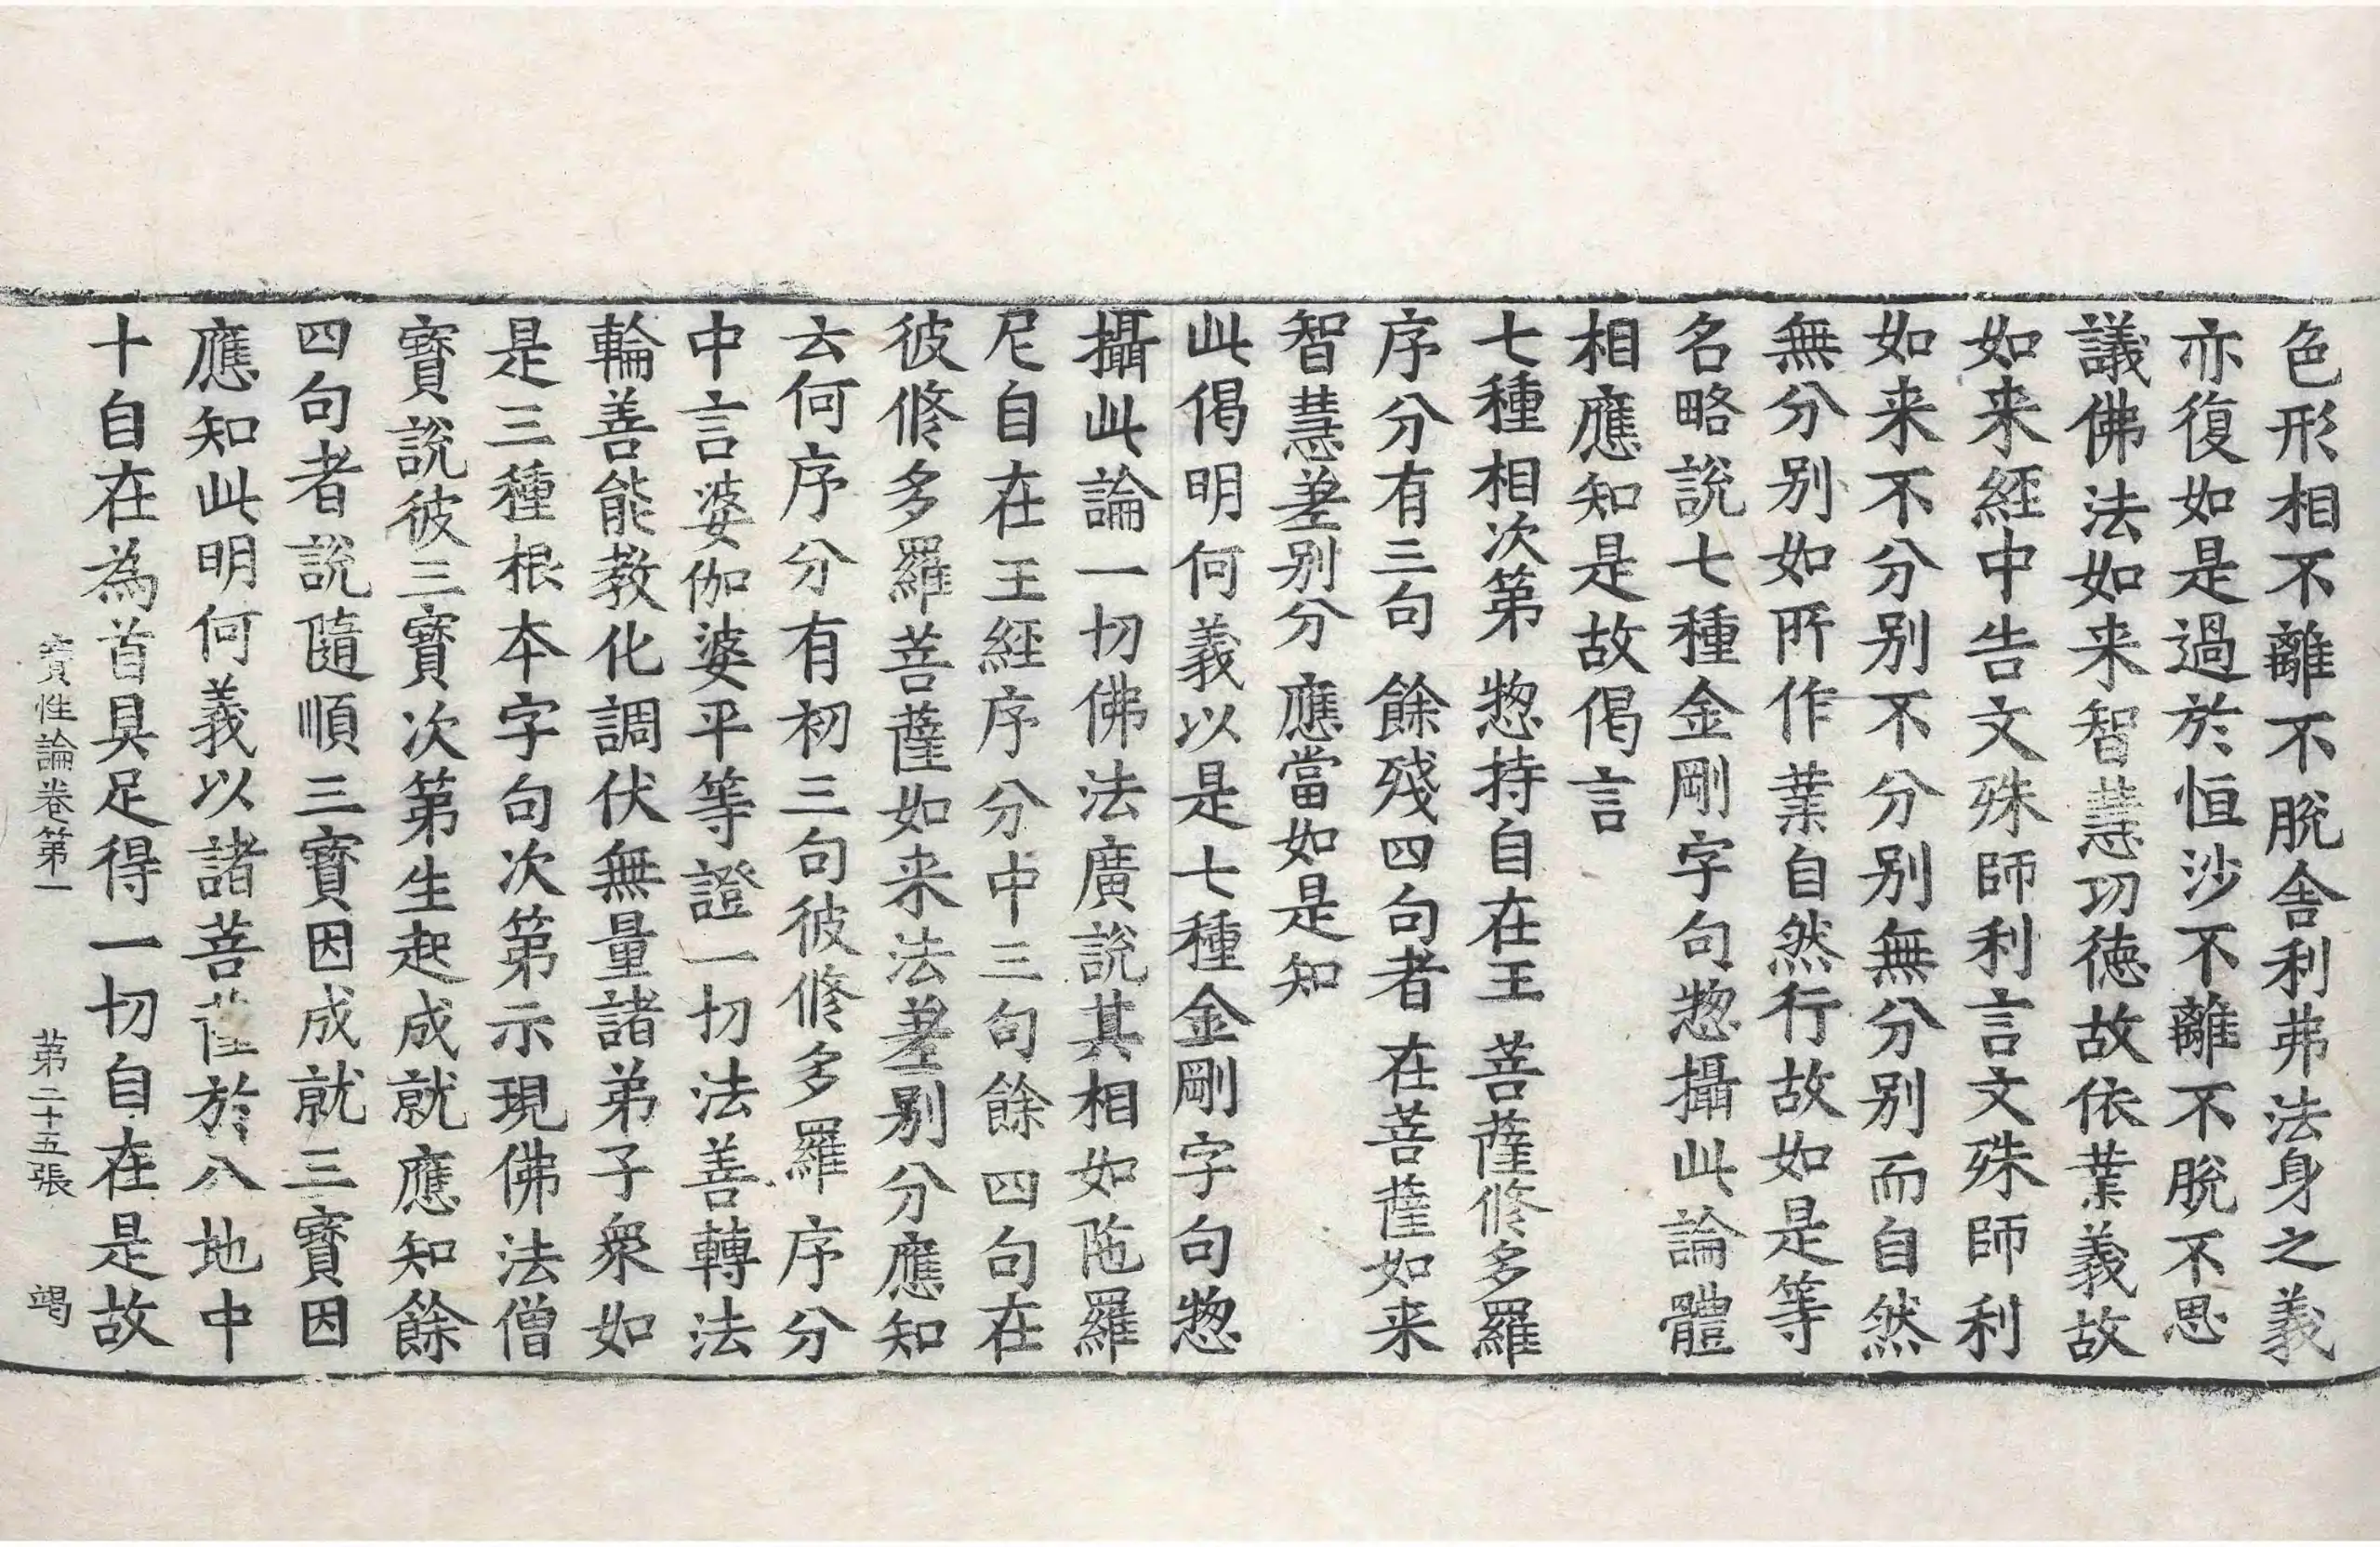 色形相不離不脫舍利弗法身之義
亦復如是過於恒沙不離不脫不思
議佛法如来智慧功徳故依業義故
如来經中告文殊師利言文殊師利
如来不分别不分别無分别而自然
無分别如所作業自然行故如是等
名略說七種金剛字句惣攝此論體
相應知是故偈言
七種相次第　惣持自在王　菩薩修多羅
序分有三句　餘殘四句者　在菩薩如来
智慧差别分　應當如是知
此偈明何義以是七種金剛字句惣
攝此論一切佛法廣說其相如陁羅
尼自在王經序分中三句餘四句在
彼修多羅菩薩如来法差别分應知
云何序分有初三句彼修多羅序分
中言婆伽婆平等證一切法善轉法
輪善能教化調伏無量諸弟子衆如
是三種根本字句次第示現佛法僧
寶說彼三寶次第生起成就應知餘
四句者說隨順三寶因成就三寶因
應知此明何義以諸菩薩於八地中
十自在為首具足得一切自在是故
寶性論卷第一　第二十五張　竭